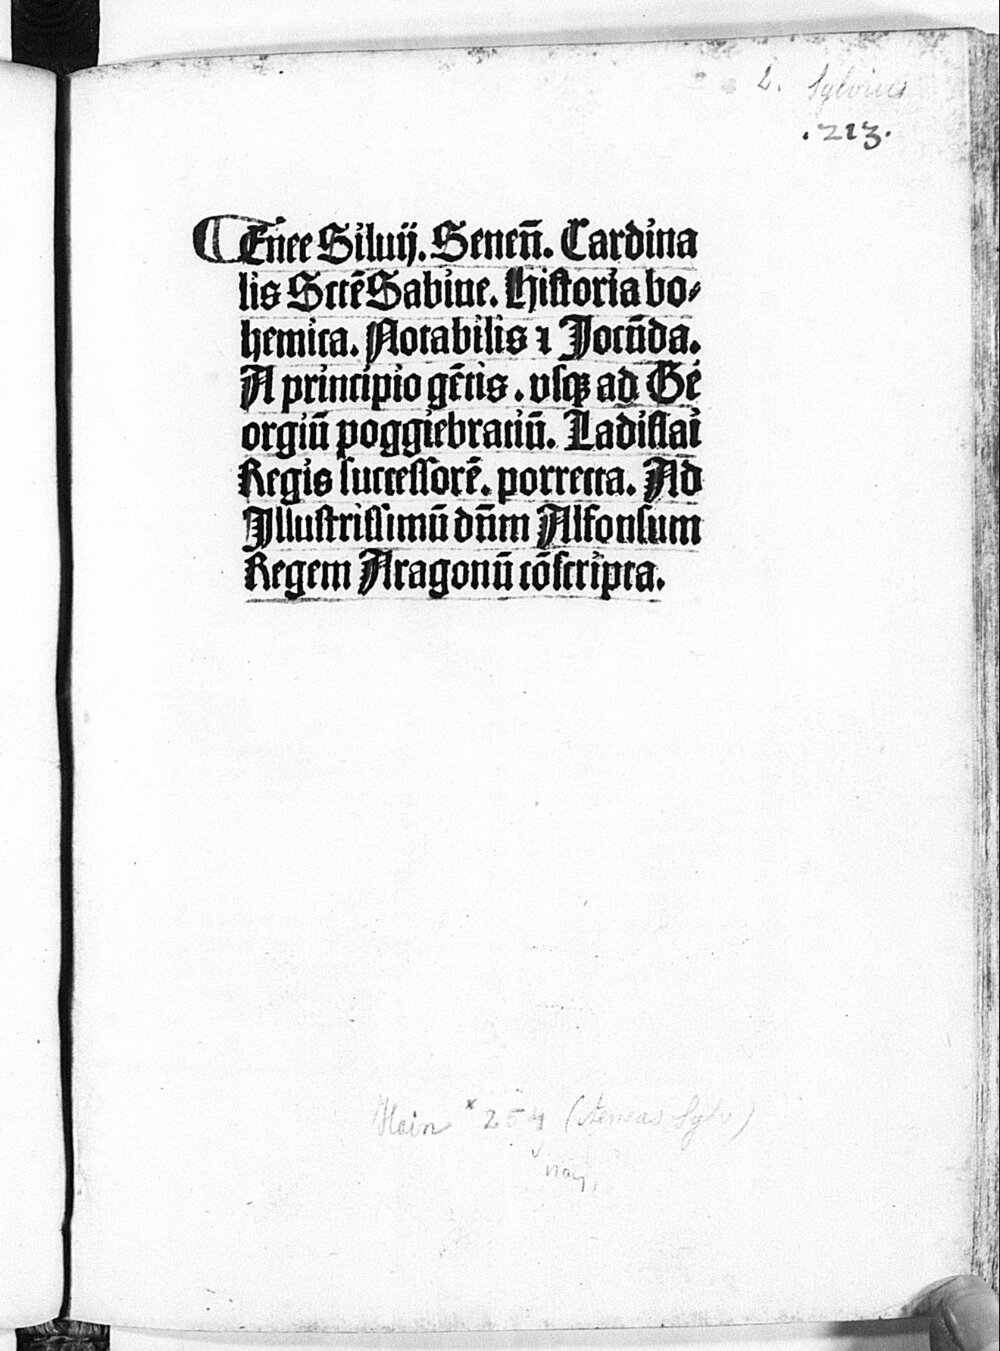 L. Sylvius
.213.
¶ Enee Siluij. Seneñ. Cardina
lis Scte᷒ Sabine. Historia bo⸗
hemica. Notabilis ⁊ Jocūda.
A principio gētis. vsqꝫ ad Ge
orgiū poggiebratiū. Ladislai
Regis successorē. porrecta. Ad
Illustrissimū dn̄m Alfonsum
Regem Aragonū cōscripta.
Hain *254 (Aeneas Sylv)